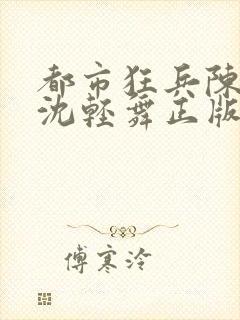 都市狂兵陳
沈輕舞正版
傅寒泠